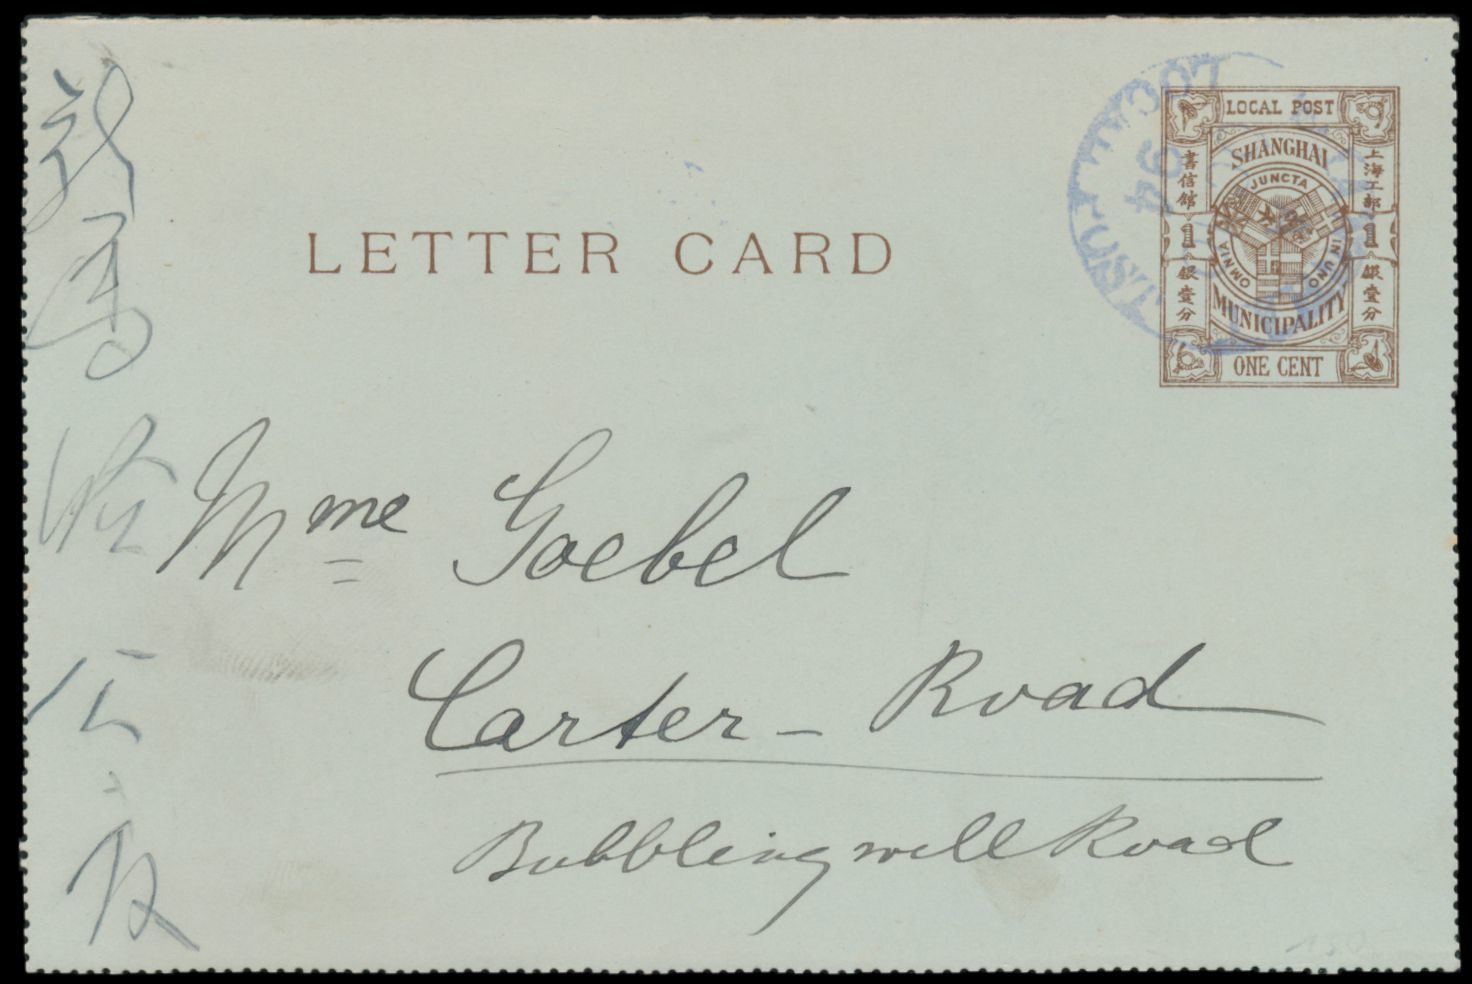 LETTER CARD
LOCAL POST
SHANGHAI
JUNCTA IN UNO OMNIA
MUNICIPALITY
ONE CENT
書信館
1
銀壹分
上海工部
1
銀壹分
LOCAL POST
94
Mme Goebel
Carter - Road
Bubblingwell Road